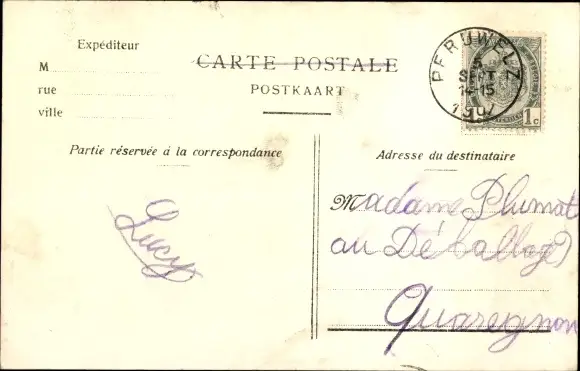 Expéditeur
M
rue
ville
CARTE POSTALE
POSTKAART
PERUWELZ
5
SEPT
14-15
1907
1 c
Partie réservée à la correspondance
Adresse du destinataire
Lucy
Madame Plumat
au Déballage
Quaregnon